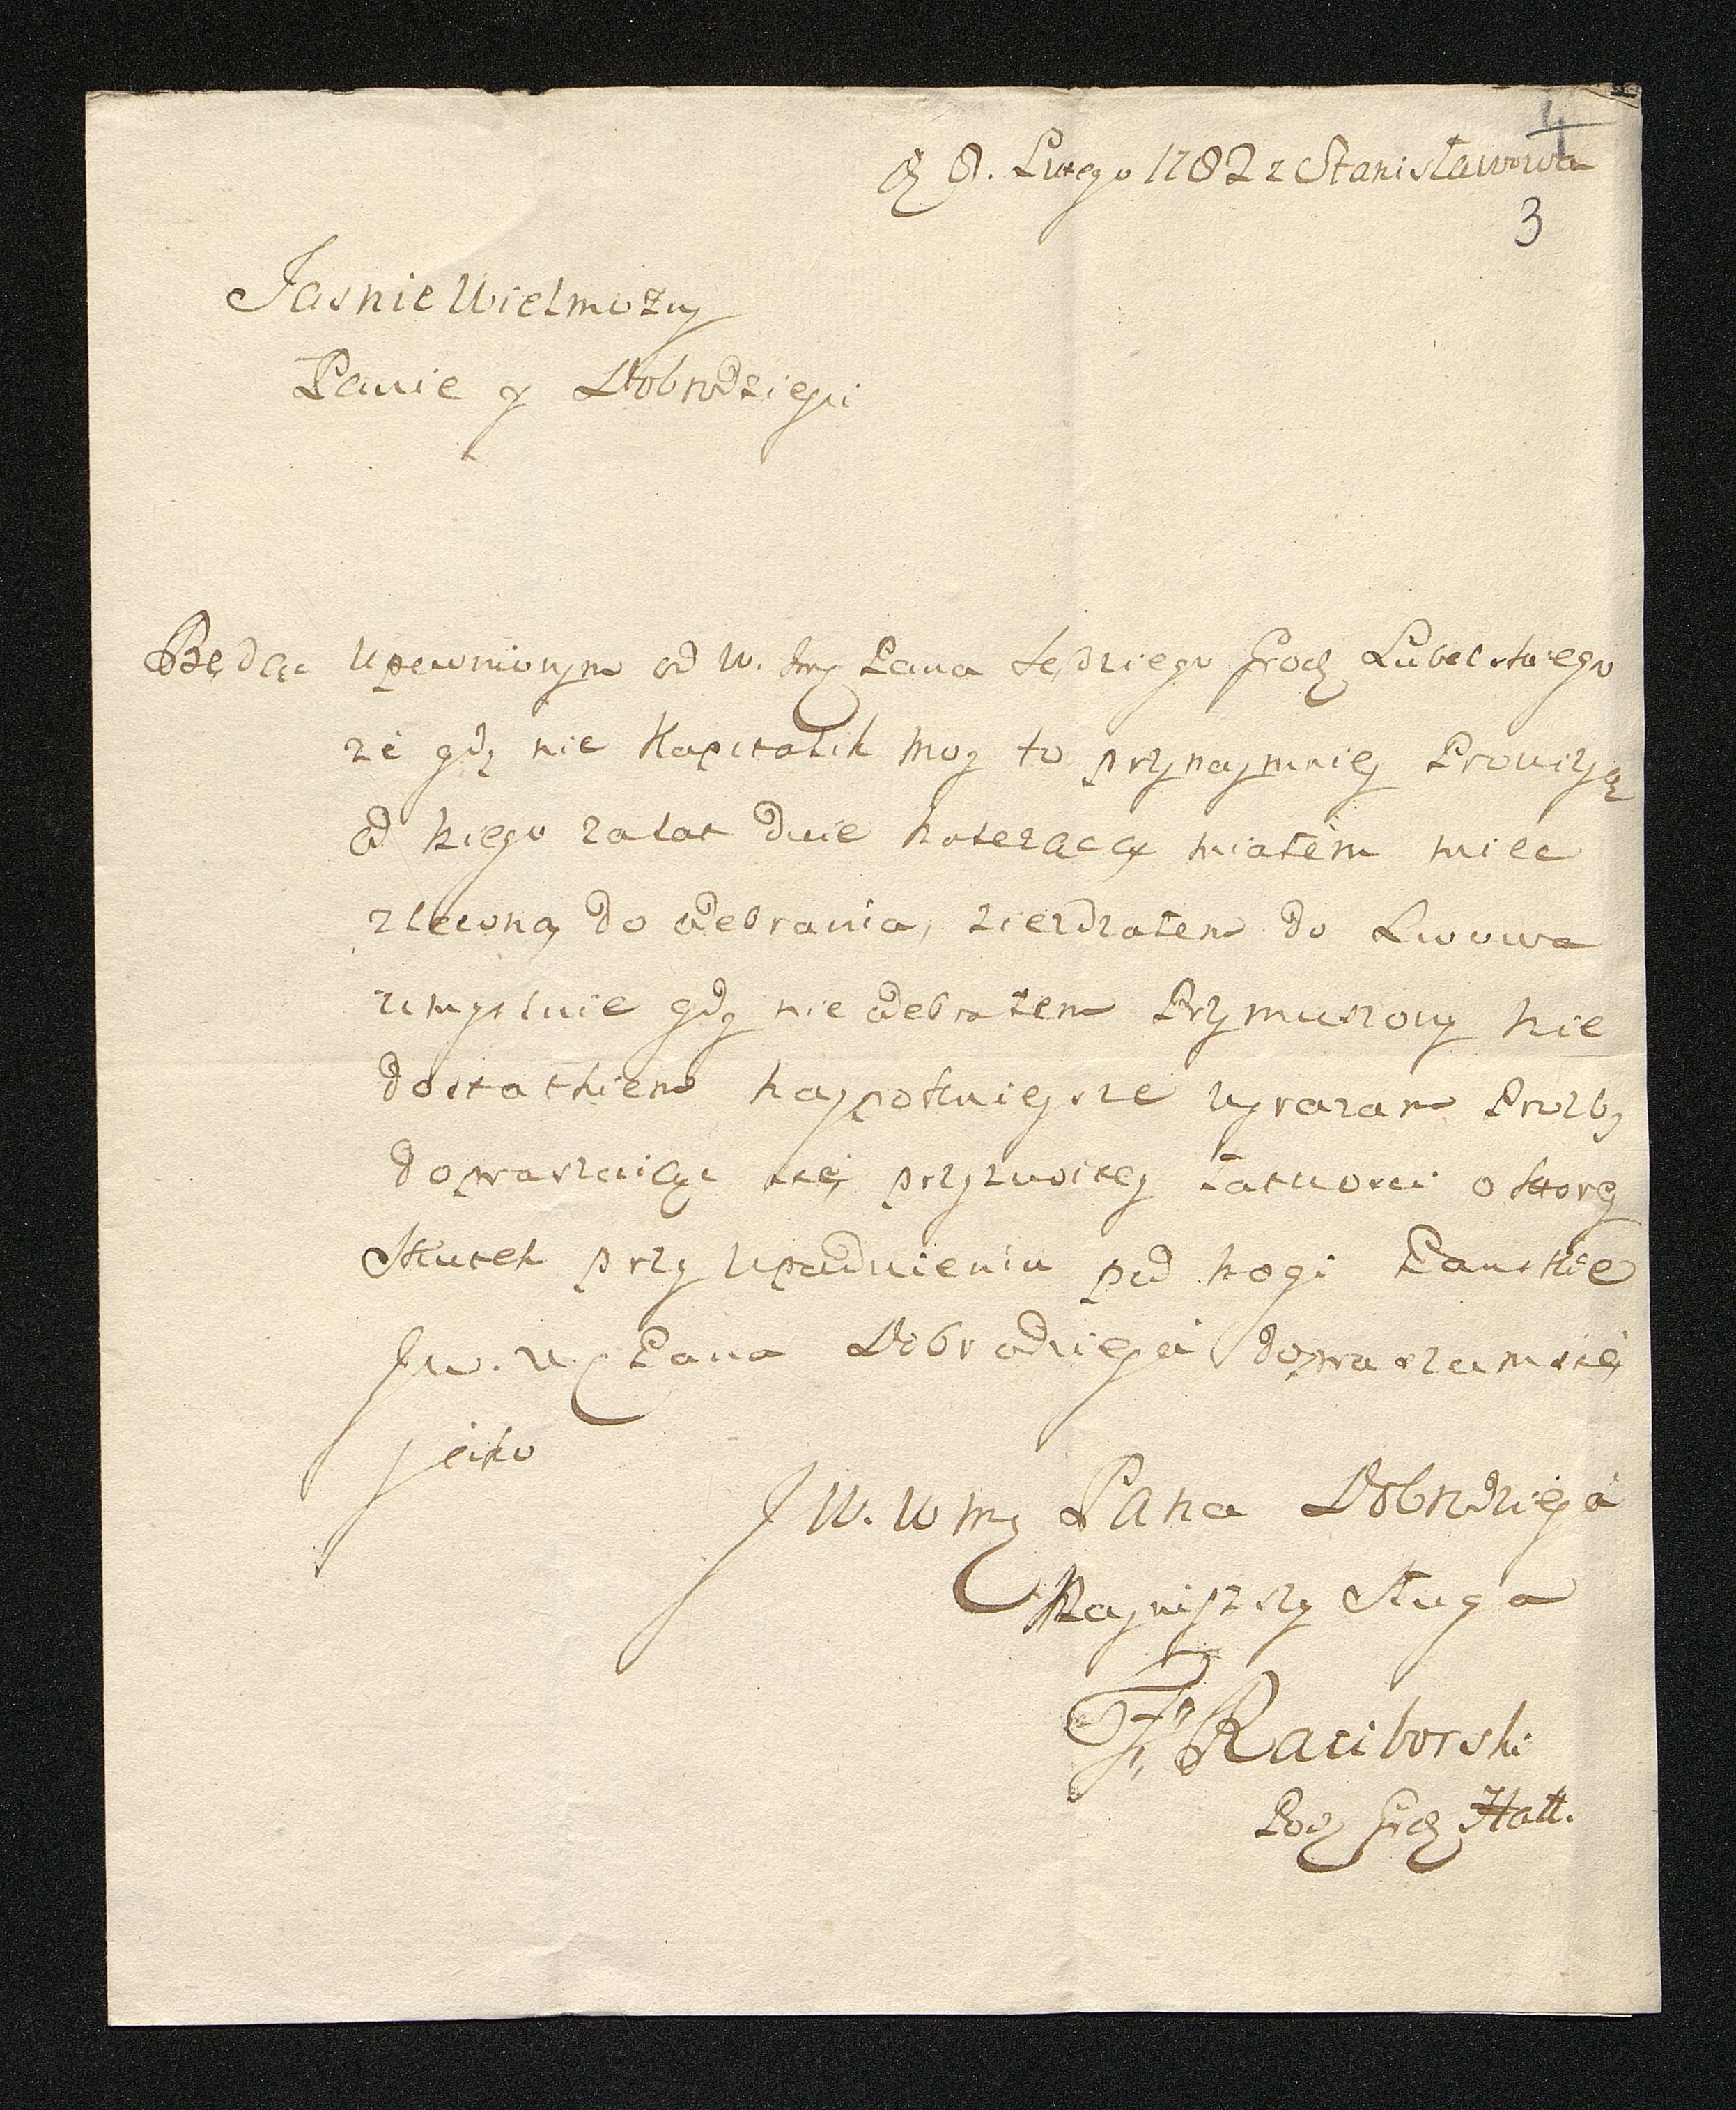 4
D 8. Lutego 1782 z Stanisławowa
3
Jasnie Wielmożny
Panie y Dobrodzieju
Będąc upewnionym od W. Jmć Pana Sędziego Grodz Lubelskiego
że gdy nie Kapitalik moy to przynaymniey Prowizyą
od niego za lat dwie należącą miałem mieć
zleconą do odebrania, zjezdżałem do Lwowa
umyslnie gdy nie odebrałem Przymuszony nie
dostatkiem naypokornieysze wyrażam Prozby
dopraszaiąc się przyzwoitey łatwosci o ktorey
Skutek przy upadnieniu pod nogi Panskie
JW. W Pana Dobrodzieja dopraszam się
jako
JW. WMć Pana Dobrodzieja
Nayniższy Sługa
F Raciborski
Grdz Hall.